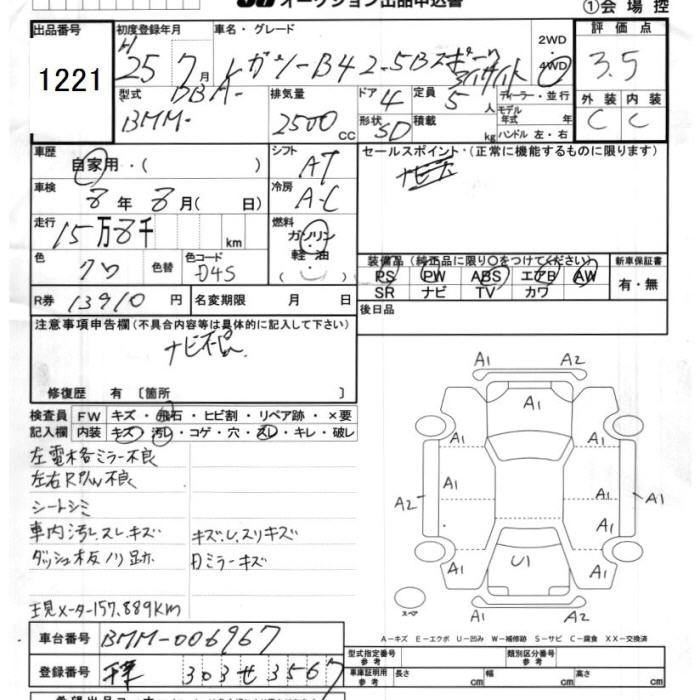 オークション出品申込書
①会場控
出品番号
1221
初度登録年月
H
25 7月
車名・グレード
レガシーB4 2.5Bスポーツ
アイサイト
2WD
4WD
評価点
3.5
型式
DBA-
BMM-
排気量
2500 cc
ドア 4
形状 SD
定員 5 人
積載 kg
ディーラー・並行
モデル年式 年
ハンドル 左・右
外装 内装
C C
車歴
自家用・( )
シフト
AT
セールスポイント・(正常に機能するものに限ります)
車検
8年8月( 日)
冷房
A-C
走行
15万8千 km
燃料
ガソリン
・
軽・油
( )
色
クロ
色替
色コード
D4S
装備品(純正品に限り○をつけてください)
PS PW ABS エアB AW
SR ナビ TV カワ
新車保証書
有・無
R券 13910 円
名変期限 月 日
後日品
注意事項申告欄(不具合内容等は具体的に記入して下さい)
ナビ不良
修復歴 有 〔箇所 〕
検査員 FW キズ・飛石・ヒビ割・リペア跡・×要
記入欄 内装 キズ・汚レ・コゲ・穴・スレ・キレ・破レ
左電格ミラー不良
左右RP/W不良
シートシミ
車内汚レ、スレ、キズ
ダッシュ板ノリ跡
キズ、U、スリキズ
Dミラーキズ
現メーター157,889km
A1 A2
A1
A1 A1
A2 A1 A1 A1
A1
A1 U1 A1
A1 A2
スペア
A-キズ E-エクボ U-凹み W-補修跡 S-サビ C-腐食 XX-交換済
車台番号 BMM-006967
登録番号 303 せ 3567
型式指定番号
参考
類別区分番号
参考
車庫証明用
参考
長さ cm 幅 cm 高さ cm